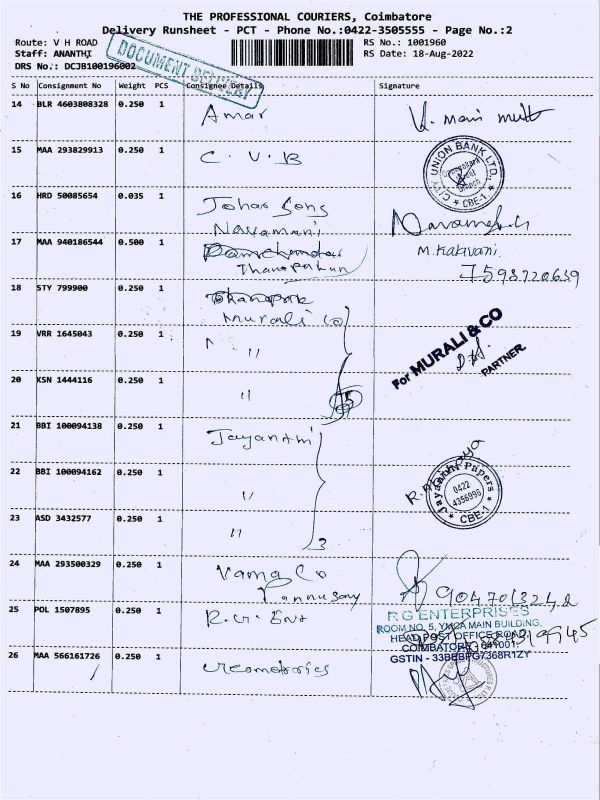 THE PROFESSIONAL COURIERS, Coimbatore
Delivery Runsheet - PCT - Phone No.:0422-3505555 - Page No.:2
Route: V H ROAD
RS No.: 1001960
Staff: ANANTHI
RS Date: 18-Aug-2022
DRS No.: DCJB100196002
DOCUMENT DELIVERY
S No Consignment No Weight PCS Consignee Details Signature
14 BLR 4603808328 0.250 1 Amar
15 MAA 293829913 0.250 1 C.V.B
CITY UNION BANK LTD.
CBE-1
16 HRD 50085654 0.035 1 Johar Sons
Navamani
17 MAA 940186544 0.500 1
7598720639
18 STY 799900 0.250 1
Murali Co
19 VRR 1645043 0.250 1 "
For MURALI & CO
PARTNER
20 KSN 1444116 0.250 1 "
5
21 BBI 100094138 0.250 1 Jayanthi
22 BBI 100094162 0.250 1 "
Jayanthi Papers
0422
4356996
CBE-1
23 ASD 3432577 0.250 1 "
3
24 MAA 293500329 0.250 1 Vama Co
25 POL 1507895 0.250 1 R.G. Ent
R G ENTERPRISES
ROOM NO. 5, YMCA MAIN BUILDING,
HEAD POST OFFICE ROAD,
COIMBATORE - 641001.
GSTIN - 33BEBPG7368R1ZY
26 MAA 566161726 0.250 1